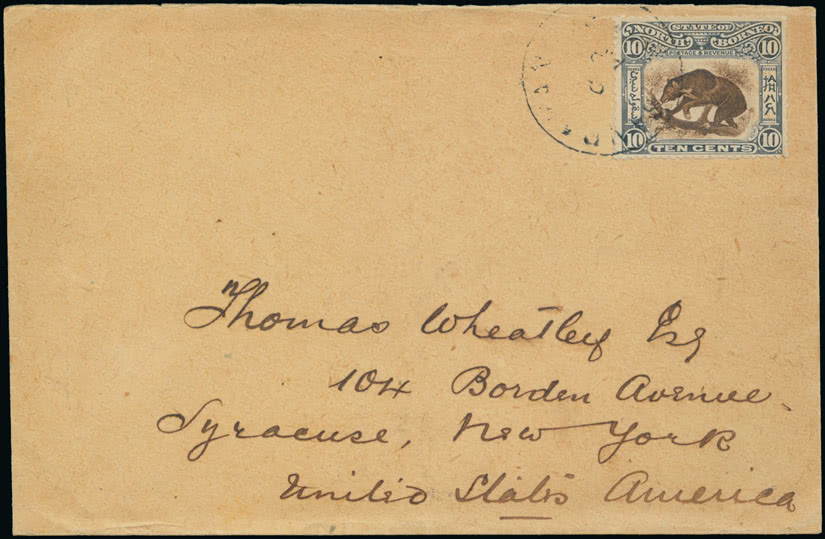 STATE OF
NORTH BORNEO
POSTAGE & REVENUE
10 10
10 TEN CENTS 10
Thomas Wheatley Esq
104 Borden Avenue
Syracuse, New York
United States America